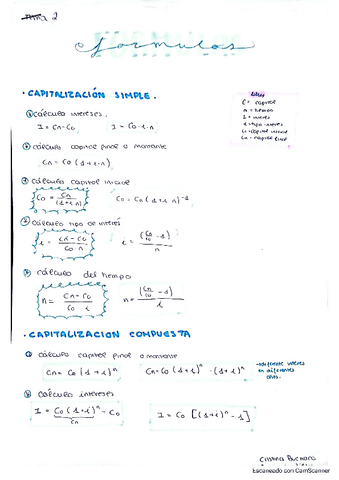 Tema 2
formulas
· CAPITALIZACIÓN SIMPLE.
C = capital
n = tiempo
I = interés
i = tipo interés
Co = capital inicial
Cn = capital final
① cálculo intereses.
I = Cn - Co    I = Co · i · n
② cálculo capital final o montante
Cn = Co (1 + i · n)
③ cálculo capital inicial
Co = Cn / (1 + i · n)    Co = Cn (1 + i · n)⁻¹
cálculo tipo de interés
i = Cn - Co / Co · n    i = (Cn/Co - 1) / n
cálculo del tiempo
n = Cn - Co / Co · i    n = (Cn/Co - 1) / i
· CAPITALIZACION COMPUESTA
① cálculo capital final o montante
Cn = Co (1 + i)ⁿ    Cn = Co (1 + i)ⁿ · (1 + i)ⁿ → diferente interés
en diferentes
años.
② cálculo intereses
I = Co (1 + i)ⁿ - Co    I = Co [(1 + i)ⁿ - 1]
Cn
Cristina
Escaneado con CamScanner